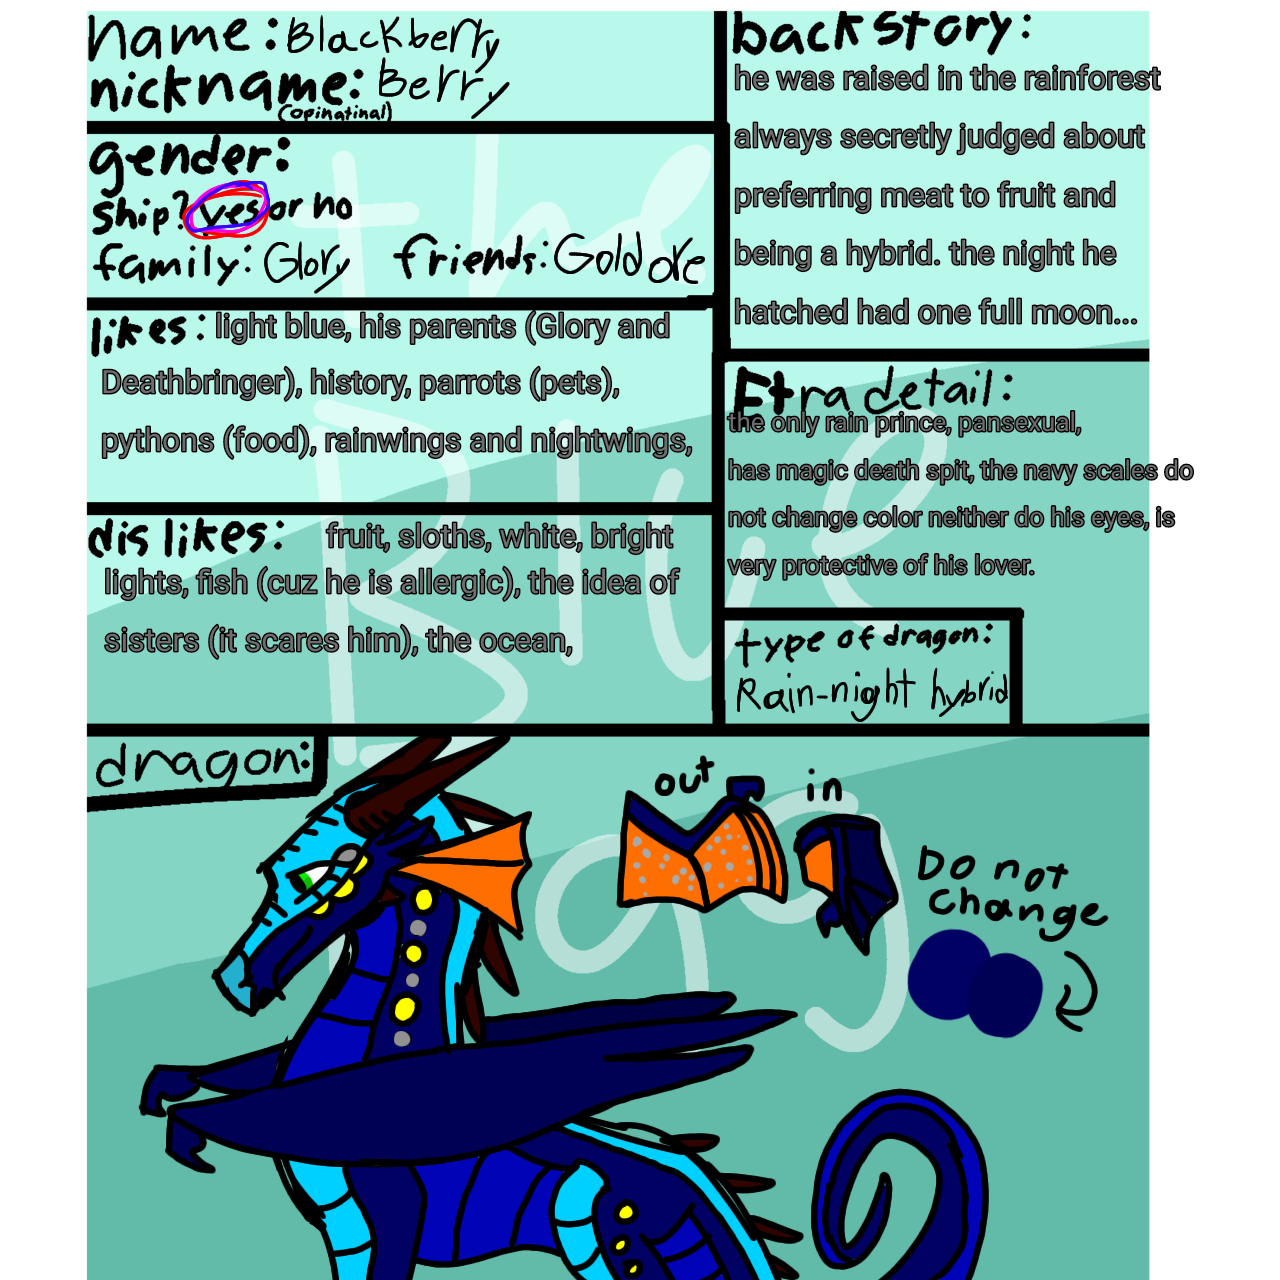 name: Blackberry
nickname: Berry
(opinatinal)
gender:
ship? yes or no
family: Glory friends: Gold ore
likes: light blue, his parents (Glory and
Deathbringer), history, parrots (pets),
pythons (food), rainwings and nightwings,
dislikes: fruit, sloths, white, bright
lights, fish (cuz he is allergic), the idea of
sisters (it scares him), the ocean,
backstory:
he was raised in the rainforest
always secretly judged about
preferring meat to fruit and
being a hybrid. the night he
hatched had one full moon...
Etra detail:
the only rain prince, pansexual,
has magic death spit, the navy scales do
not change color neither do his eyes, is
very protective of his lover.
type of dragon:
Rain-night hybrid
dragon:
out in
Do not
change
the
Blue